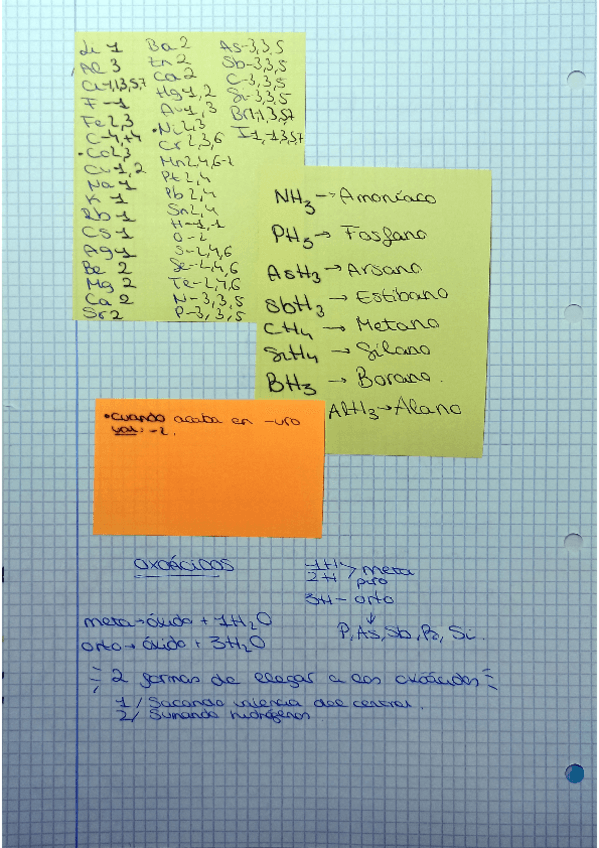 Li 1
Al 3
Cl-1,1,3,5,7
F -1
Fe 2,3
C-4,+4
•Co2,3
Cu 1,2
Na 1
K 1
Rb 1
Cs 1
Ag 1
Be 2
Mg 2
Ca 2
Sr 2
Ba 2
Zn 2
Ca 2
Hg 1,2
Au 1,3
•Ni 2,3
Cr 2,3,6
Mn2,4,6
Pt 2,4
Pb 2,4
Sn 2,4
H-1,1
O-2
S-2,4,6
Se-2,4,6
Te-2,4,6
N-3,3,5
P-3,3,5
As-3,3,5
Sb-3,3,5
C-3,3,5
Si-3,3,5
Br1-1,3,5,7
I1,-1,3,5,7
NH3 → Amoníaco
PH3 → Fosfano
AsH3 → Arsano
SbH3 → Estibano
CH4 → Metano
SiH4 → Silano
BH3 → Borano.
AlH3 → Alano
•cuando acaba en -uro
val: -2.
OXOÁCIDOS
1H > meta
2H piro
3H - orto
↓
P, As, Sb, B, Si.
meta → óxido + 1H2O
orto → óxido + 3H2O
2 formas de llegar a los oxoácidos
1/ Sacando valencia del central.
2/ Sumando hidrógenos